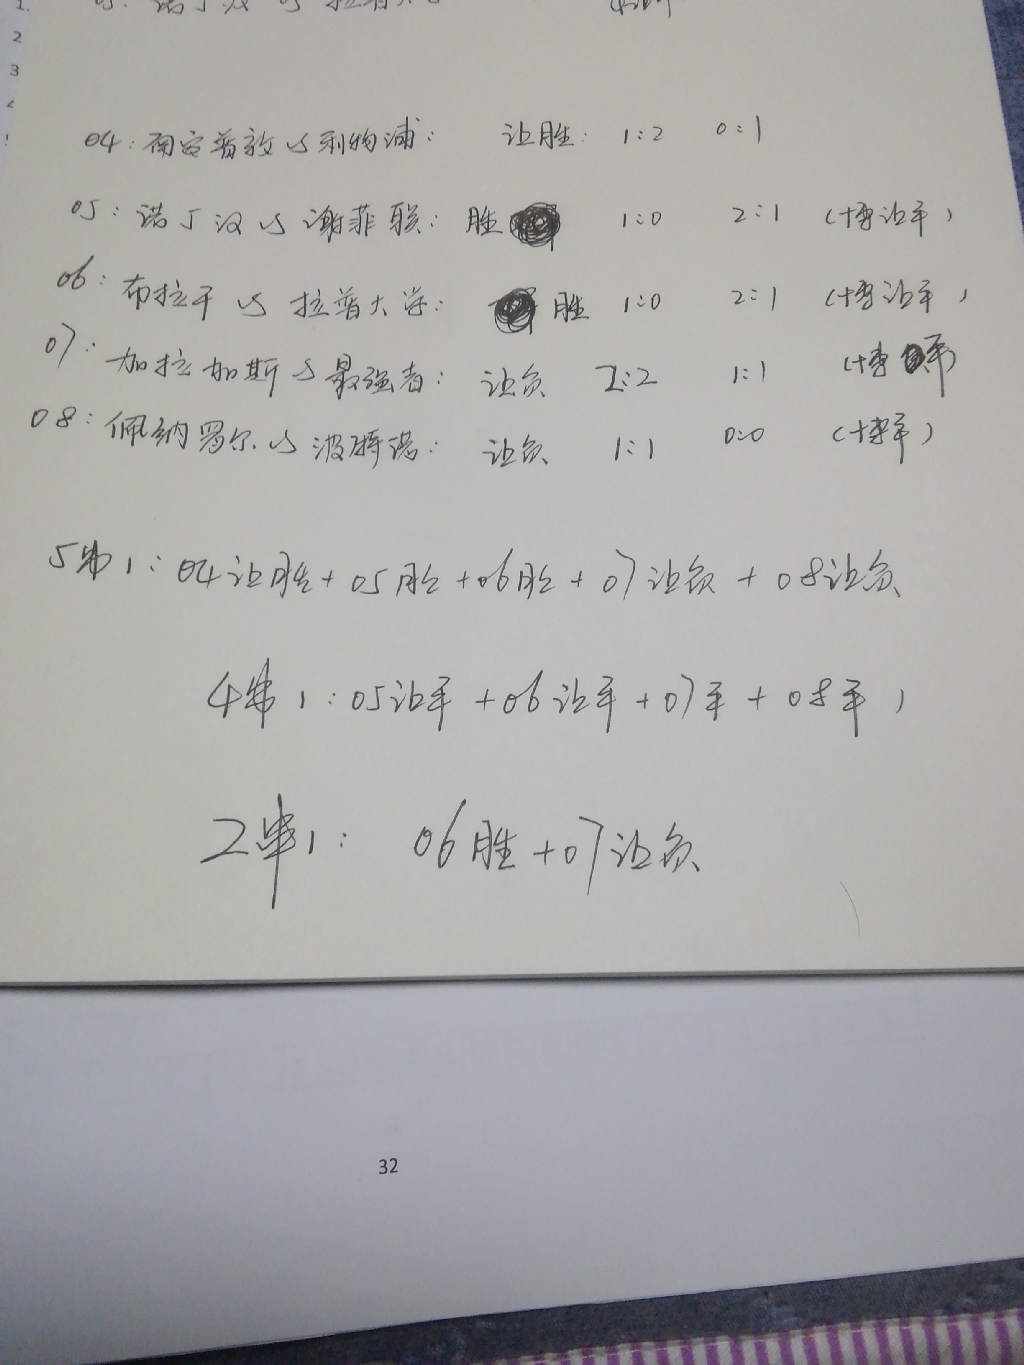 1.
2
3
04:南安普敦VS利物浦: 让胜: 1:2 0:1
05:诺丁汉VS谢菲联: 胜 1:0 2:1 (博让平)
06:布拉干VS拉普大学: 胜 1:0 2:1 (博让平)
07:加拉加斯VS最强者: 让负 2:2 1:1 (博平)
08:佩纳罗尔VS波特诺: 让负 1:1 0:0 (博平)
5串1:04让胜+05胜+06胜+07让负+08让负
4串1:05让平+06让平+07平+08平)
2串1: 06胜+07让负
32